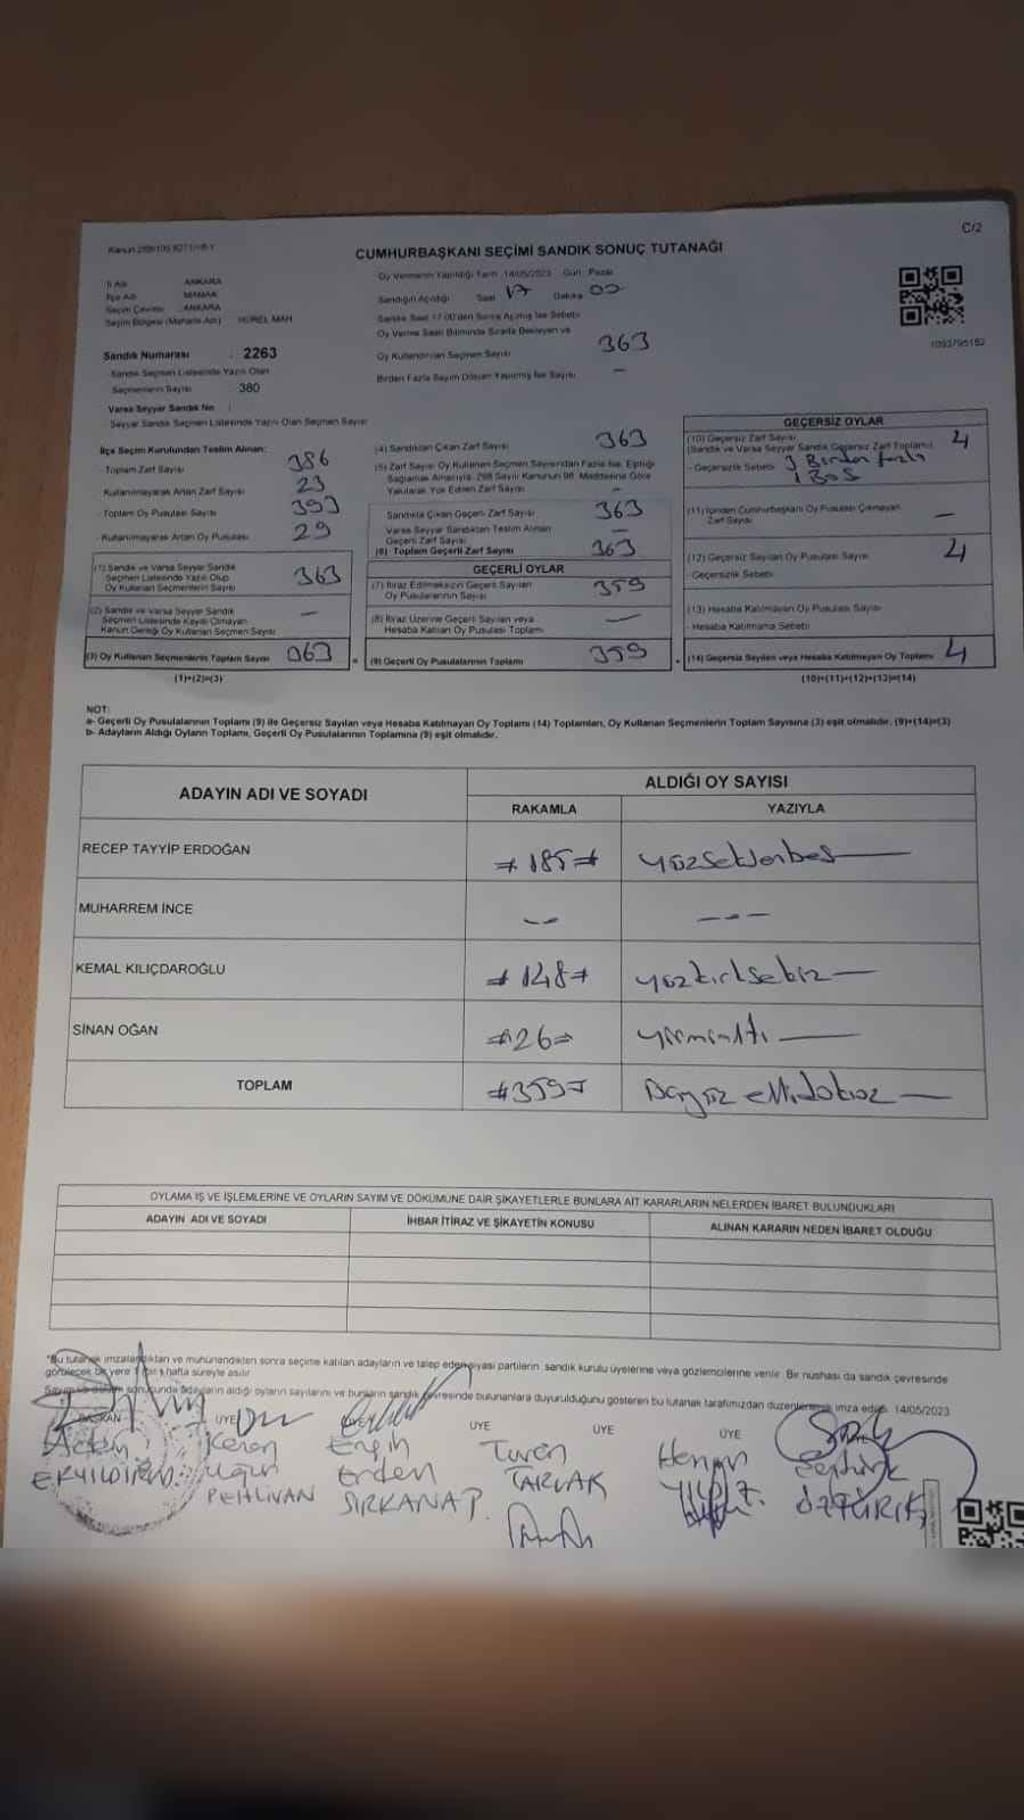 C/2
CUMHURBAŞKANI SEÇİMİ SANDIK SONUÇ TUTANAĞI
Oy Vermenin Yapıldığı Tarih : 14/05/2023 Gün : Pazar
İl Adı ANKARA
İlçe Adı MAMAK
Seçim Çevresi ANKARA
Seçim Bölgesi (Mahalle Adı) HÜREL MAH
Sandığın Açıldığı Saat 17 Dakika 00
Sandık Saat 17:00'den Sonra Açılmış İse Sebebi
Oy Verme Saati Bitiminde Sırada Bekleyen ve
Oy Kullandırılan Seçmen Sayısı 363
Birden Fazla Sayım Döküm Yapılmış İse Sayısı —
1093795162
Sandık Numarası : 2263
Sandık Seçmen Listesinde Yazılı Olan
Seçmenlerin Sayısı 380
Varsa Seyyar Sandık No :
Seyyar Sandık Seçmen Listesinde Yazılı Olan Seçmen Sayısı
İlçe Seçim Kurulundan Teslim Alınan:
- Toplam Zarf Sayısı 386
- Kullanılmayarak Artan Zarf Sayısı 23
- Toplam Oy Pusulası Sayısı 393
- Kullanılmayarak Artan Oy Pusulası 29
(1) Sandık ve Varsa Seyyar Sandık
Seçmen Listesinde Yazılı Olup
Oy Kullanan Seçmenlerin Sayısı 363
(2) Sandık ve Varsa Seyyar Sandık
Seçmen Listesinde Kaydı Olmayan
Kanun Gereği Oy Kullanan Seçmen Sayısı —
(3) Oy Kullanan Seçmenlerin Toplam Sayısı 363
(1)+(2)=(3)
(4) Sandıktan Çıkan Zarf Sayısı 363
(5) Zarf Sayısı Oy Kullanan Seçmen Sayısından Fazla İse, Eşitliği
Sağlamak Amacıyla, 298 Sayılı Kanunun 98. Maddesine Göre
Yakılarak Yok Edilen Zarf Sayısı —
Sandıkta Çıkan Geçerli Zarf Sayısı 363
Varsa Seyyar Sandıktan Teslim Alınan
Geçerli Zarf Sayısı —
(6) Toplam Geçerli Zarf Sayısı 363
GEÇERLİ OYLAR
(7) İtiraz Edilmeksizin Geçerli Sayılan
Oy Pusulalarının Sayısı 359
(8) İtiraz Üzerine Geçerli Sayılan veya
Hesaba Katılan Oy Pusulası Toplamı —
(9) Geçerli Oy Pusulalarının Toplamı 359
GEÇERSİZ OYLAR
(10) Geçersiz Zarf Sayısı 4
(Sandık ve Varsa Seyyar Sandık Geçersiz Zarf Toplamı)
- Geçersizlik Sebebi 3 Birden fazla
1 Boş
(11) İçinden Cumhurbaşkanı Oy Pusulası Çıkmayan
Zarf Sayısı —
(12) Geçersiz Sayılan Oy Pusulası Sayısı 4
- Geçersizlik Sebebi
(13) Hesaba Katılmayan Oy Pusulası Sayısı
- Hesaba Katılmama Sebebi
(14) Geçersiz Sayılan veya Hesaba Katılmayan Oy Toplamı 4
(10)+(11)+(12)+(13)=(14)
NOT:
a- Geçerli Oy Pusulalarının Toplamı (9) ile Geçersiz Sayılan veya Hesaba Katılmayan Oy Toplamı (14) Toplamları, Oy Kullanan Seçmenlerin Toplam Sayısına (3) eşit olmalıdır. (9)+(14)=(3)
b- Adayların Aldığı Oyların Toplamı, Geçerli Oy Pusulalarının Toplamına (9) eşit olmalıdır.
ADAYIN ADI VE SOYADI ALDIĞI OY SAYISI
RAKAMLA YAZIYLA
RECEP TAYYİP ERDOĞAN 185 yüzseksenbeş
MUHARREM İNCE — — — — —
KEMAL KILIÇDAROĞLU 148 yüzkırksekiz
SİNAN OĞAN 26 yirmialtı
TOPLAM 359 üçyüz ellidokuz
OYLAMA İŞ VE İŞLEMLERİNE VE OYLARIN SAYIM VE DÖKÜMÜNE DAİR ŞİKAYETLERLE BUNLARA AİT KARARLARIN NELERDEN İBARET BULUNDUKLARI
ADAYIN ADI VE SOYADI İHBAR İTİRAZ VE ŞİKAYETİN KONUSU ALINAN KARARIN NEDEN İBARET OLDUĞU
*Bu tutanak imzalandıktan ve mühürlendikten sonra seçime katılan adayların ve talep eden siyasi partilerin sandık kurulu üyelerine veya gözlemcilerine verilir. Bir nüshası da sandık çevresinde
görülecek bir yere 1 (bir) hafta süreyle asılır.
Sayım ve döküm sonucunda adayların aldığı oyların sayılarını ve bunların sandık çevresinde bulunanlara duyurulduğunu gösteren bu tutanak tarafımızdan düzenlenerek imza edildi. 14/05/2023
BAŞKAN ÜYE ÜYE ÜYE ÜYE
Kerem
Uğur
PEHLİVAN
Engin
Erden
SIRKANAT
Turen
TARLAK
ÖZTÜRK